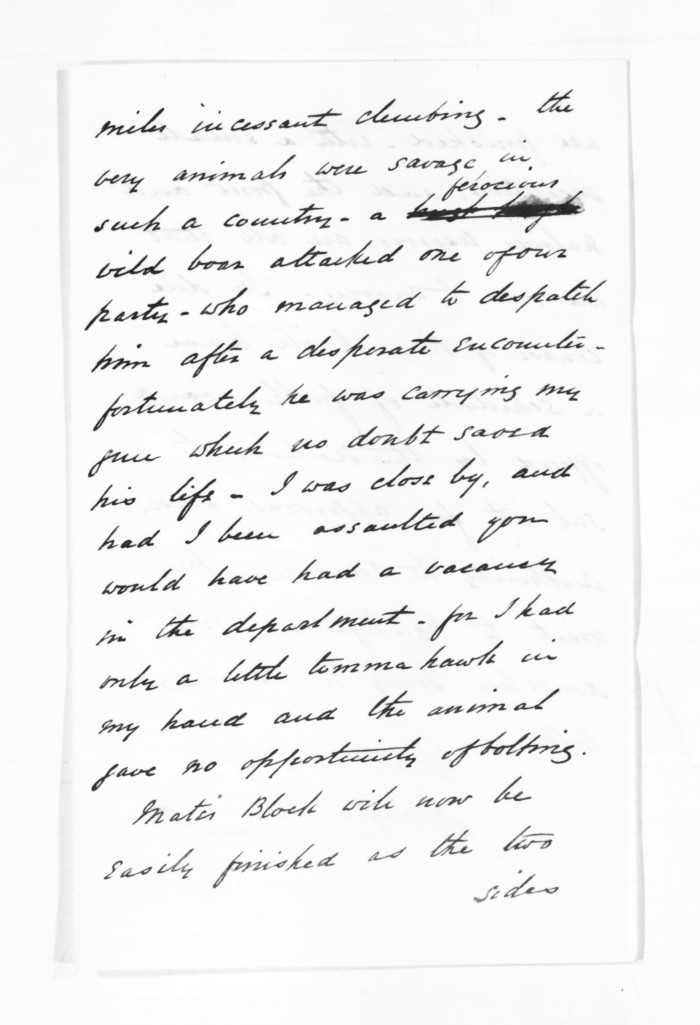 miles incessant climbing - the
very animals were savage in
ferocious
such a country - a
wild boar attacked one of our
party - who managed to despatch
him after a desperate encounter -
fortunately he was carrying my
gun which no doubt saved
his life - I was close by, and
had I been assaulted you
would have had a vacancy
in the department - for I had
only a little tommahawk in
my hand and the animal
gave no opportunity of bolting.
Block will now be
Easily finished as the two
sides